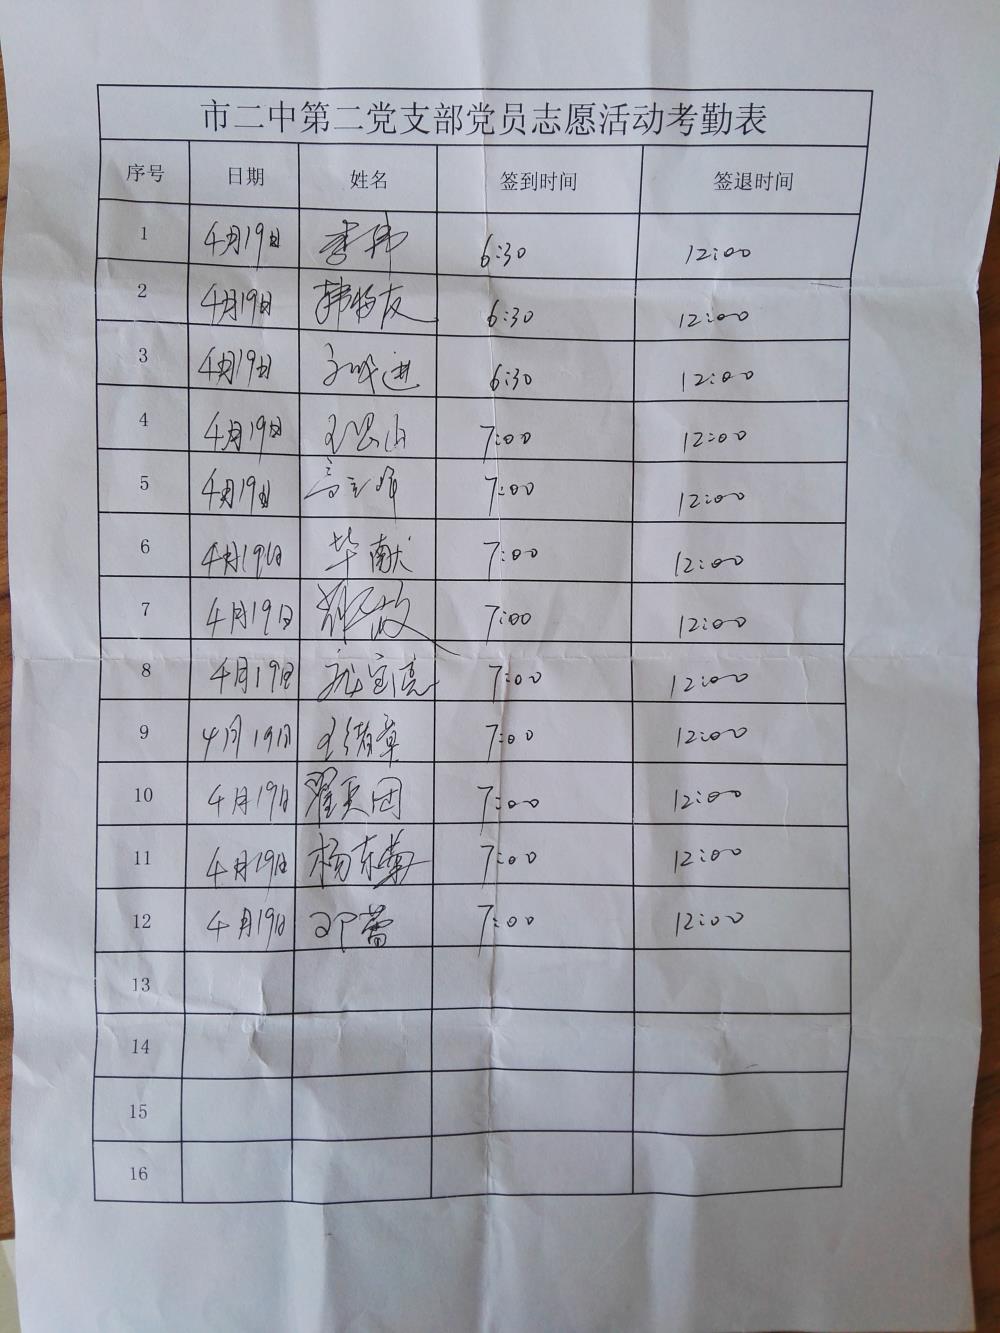 市二中第二党支部党员志愿活动考勤表
序号 日期 姓名 签到时间 签退时间
1 4月19日 李伟 6:30 12:00
2 4月19日 韩 友 6:30 12:00
3 4月19日 进 6:30 12:00
4 4月19日 王 山 7:00 12:00
5 4月19日 高 7:00 12:00
6 4月19日 毕献 7:00 12:00
7 4月19日 7:00 12:00
8 4月19日 宝亮 7:00 12:00
9 4月19日 王绪章 7:00 12:00
10 4月19日 翟 团 7:00 12:00
11 4月19日 杨东菊 7:00 12:00
12 4月19日 邓蕾 7:00 12:00
13
14
15
16